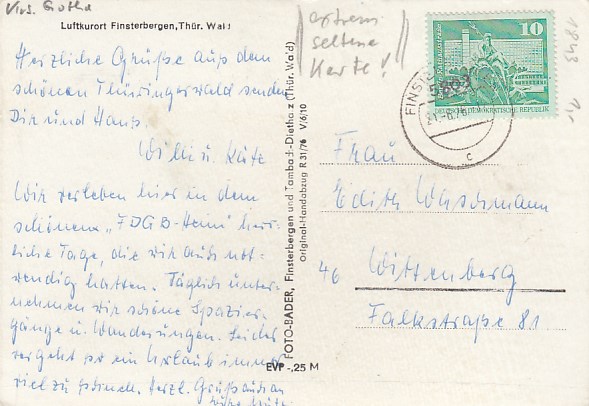 Krs. Gotha
Luftkurort Finsterbergen, Thür. Wald
Herzliche Grüße aus dem
schönen Thüringerwald senden
Dir und Hans
Willi u. Käte
Wir verleben hier in dem
schönen "FDGB-Heim" herr-
liche Tage, die wir auch not-
wendig hatten. Täglich unter-
nehmen wir schöne Spazier-
gänge u. Wanderungen. Leider
vergeht so ein Urlaub immer
viel zu schnell. Herzl. Grüße auch an
FOTO-BADER, Finsterbergen und Tambach-Dietharz (Thür. Wald)
Original-Handabzug R 31/76 V/6/10
EVP -,25 M
extrem
seltene
Karte!
10
DEUTSCHE DEMOKRATISCHE REPUBLIK
FINSTE
5803
21.-6.76
c
1843
Frau
Edith
46 Wittenberg
Falkstraße 81.